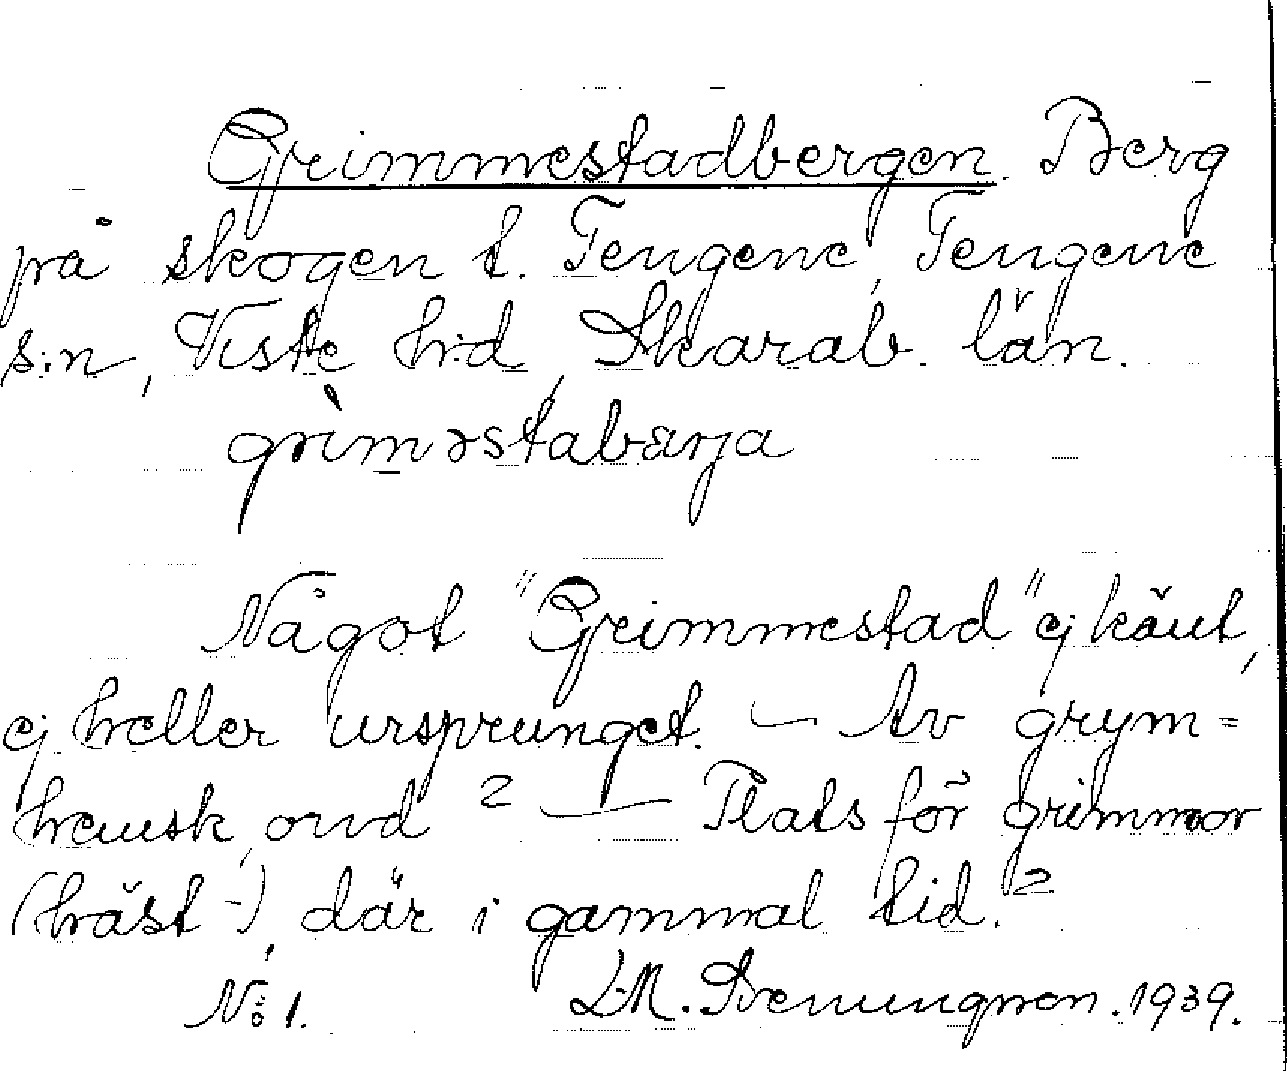 Grimmestadbergen. Berg
på skogen t. Tengene, Tengene
s:n, Viste h:d, Skarab. län.
grìməstabærja
Något "Grimmestad" ej känt,
ej heller ursprunget. — Av grym=
hemsk, ond? — Plats för grimmor
(häst-), där i gammal tid.?
N:o 1. L.M. Svenungsson. 1939.